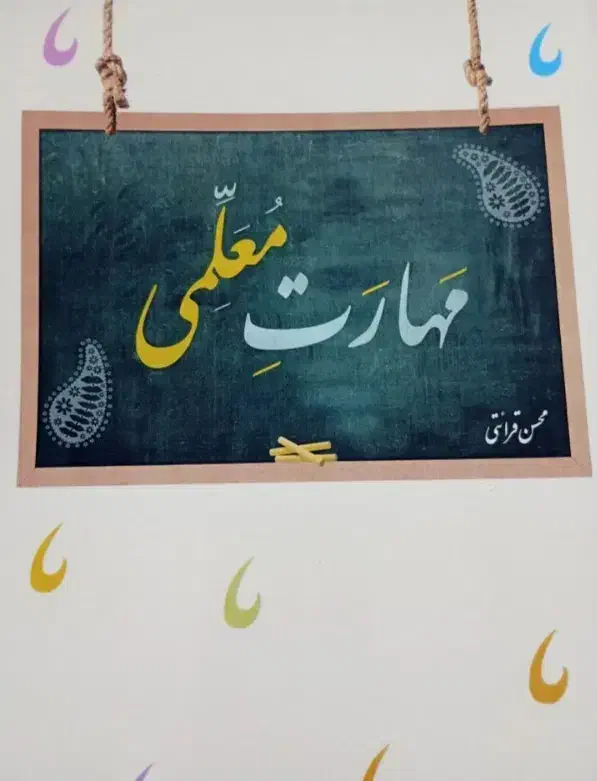 مَهارَتِ مُعَلِّمی
محسن قرائتی